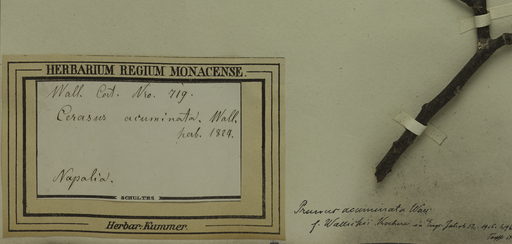 HERBARIUM REGIUM MONACENSE.
Wall. Cat. Nro. 719.
Cerasus acuminata. Wall.
herb. 1829.
Napalia.
SCHULTES
Herbar. Kummer.
Prunus acuminata
f. Wallichii Koehne in Engl. Jahrb. 52.